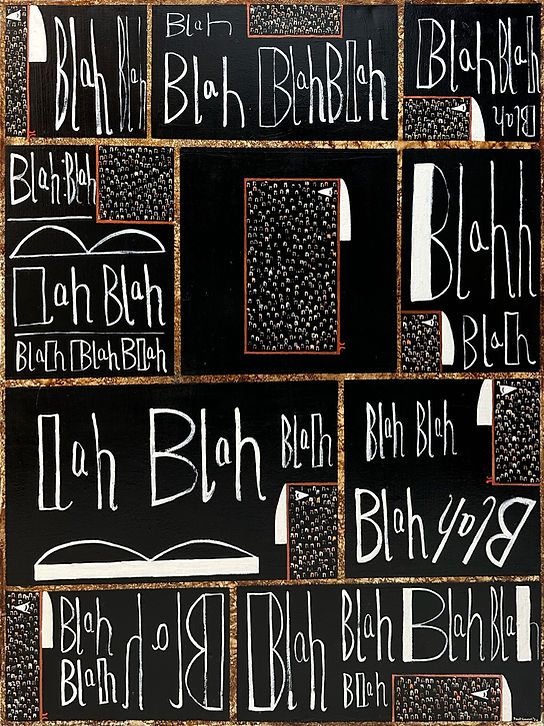 Blah Blah
Blah
Blah BlahBlah
BlahBlah
Blah
Blah:Blah
lah Blah
Blah BlahBlah
Blahh
Blah
lah Blah Blah
Blah Blah
Blah Blah
Blah Blah
Blah
Blah Blah BlahBlah
Blah